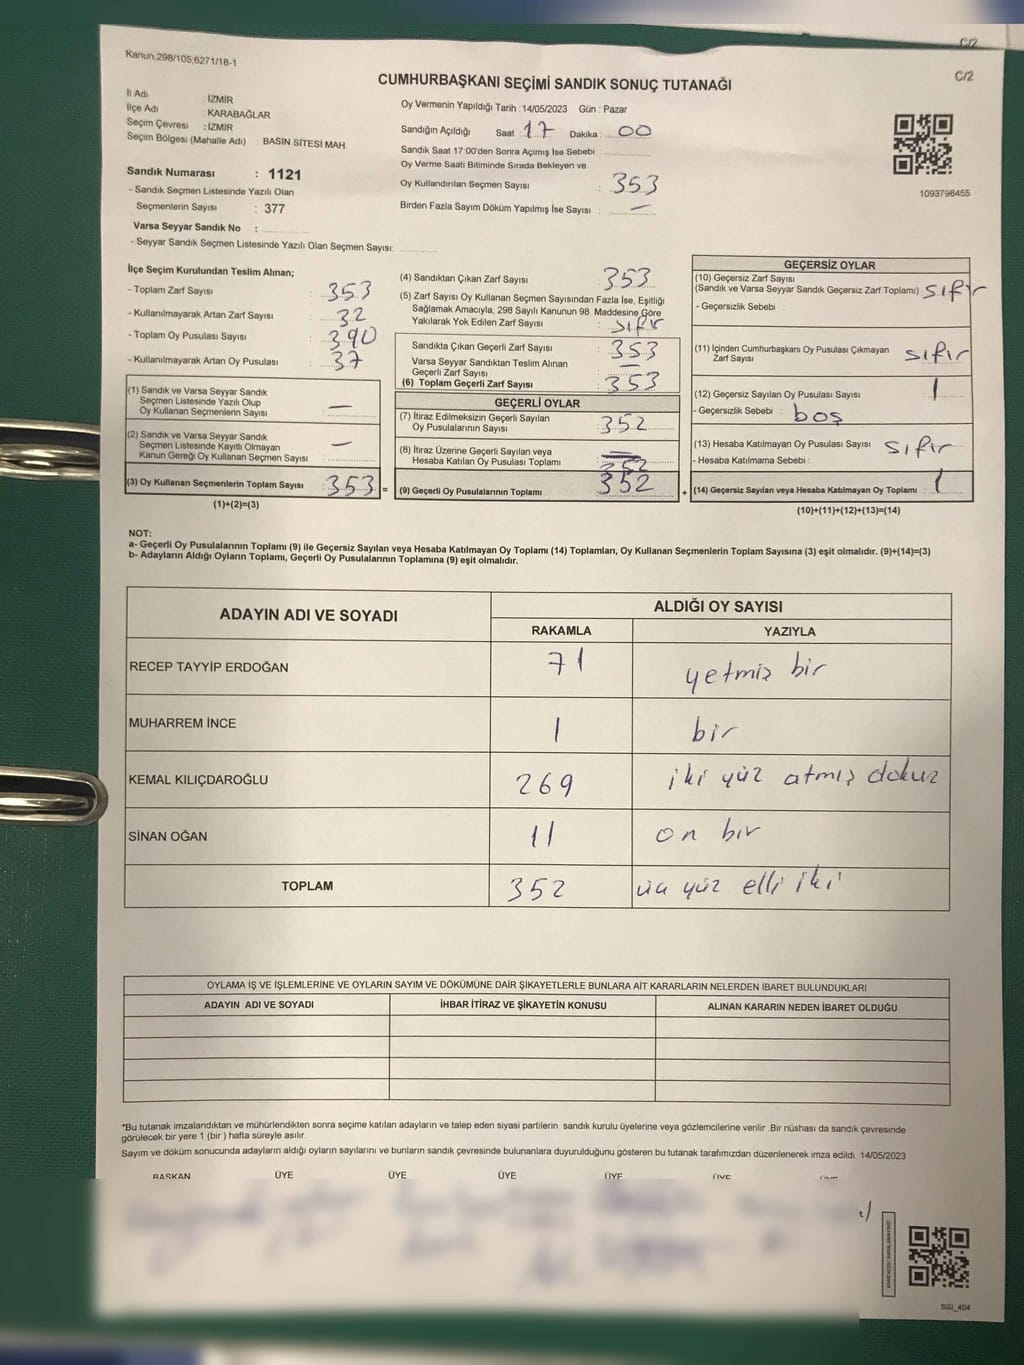 C/2
Kanun.298/105;6271/18-1
C/2
CUMHURBAŞKANI SEÇİMİ SANDIK SONUÇ TUTANAĞI
İl Adı : İZMİR
İlçe Adı : KARABAĞLAR
Seçim Çevresi : İZMİR
Seçim Bölgesi (Mahalle Adı) : BASIN SİTESİ MAH.
Sandık Numarası : 1121
- Sandık Seçmen Listesinde Yazılı Olan
Seçmenlerin Sayısı : 377
Varsa Seyyar Sandık No :
- Seyyar Sandık Seçmen Listesinde Yazılı Olan Seçmen Sayısı:
Oy Vermenin Yapıldığı Tarih : 14/05/2023 Gün : Pazar
Sandığın Açıldığı Saat : 17 Dakika : 00
Sandık Saat 17:00'den Sonra Açımış İse Sebebi
Oy Verme Saati Bitiminde Sırada Bekleyen ve
Oy Kullandırılan Seçmen Sayısı : 353
Birden Fazla Sayım Döküm Yapılmış İse Sayısı : —
1093798455
İlçe Seçim Kurulundan Teslim Alınan;
- Toplam Zarf Sayısı : 353
- Kullanılmayarak Artan Zarf Sayısı : 32
- Toplam Oy Pusulası Sayısı : 390
- Kullanılmayarak Artan Oy Pusulası : 37
(1) Sandık ve Varsa Seyyar Sandık
Seçmen Listesinde Yazılı Olup
Oy Kullanan Seçmenlerin Sayısı : —
(2) Sandık ve Varsa Seyyar Sandık
Seçmen Listesinde Kayıtlı Olmayan
Kanun Gereği Oy Kullanan Seçmen Sayısı : —
(3) Oy Kullanan Seçmenlerin Toplam Sayısı : 353 =
(1)+(2)=(3)
(4) Sandıktan Çıkan Zarf Sayısı : 353
(5) Zarf Sayısı Oy Kullanan Seçmen Sayısından Fazla İse, Eşitliği
Sağlamak Amacıyla, 298 Sayılı Kanunun 98. Maddesine Göre
Yakılarak Yok Edilen Zarf Sayısı : sıfır
Sandıkta Çıkan Geçerli Zarf Sayısı : 353
Varsa Seyyar Sandıktan Teslim Alınan
Geçerli Zarf Sayısı : —
(6) Toplam Geçerli Zarf Sayısı : 353
GEÇERLİ OYLAR
(7) İtiraz Edilmeksizin Geçerli Sayılan
Oy Pusulalarının Sayısı : 352
(8) İtiraz Üzerine Geçerli Sayılan veya
Hesaba Katılan Oy Pusulası Toplamı : 352
(9) Geçerli Oy Pusulalarının Toplamı : 352 +
GEÇERSİZ OYLAR
(10) Geçersiz Zarf Sayısı
(Sandık ve Varsa Seyyar Sandık Geçersiz Zarf Toplamı) sıfır
- Geçersizlik Sebebi :
(11) İçinden Cumhurbaşkanı Oy Pusulası Çıkmayan
Zarf Sayısı : sıfır
(12) Geçersiz Sayılan Oy Pusulası Sayısı : 1
- Geçersizlik Sebebi : boş
(13) Hesaba Katılmayan Oy Pusulası Sayısı : sıfır
- Hesaba Katılmama Sebebi :
(14) Geçersiz Sayılan veya Hesaba Katılmayan Oy Toplamı : 1
(10)+(11)+(12)+(13)=(14)
NOT:
a- Geçerli Oy Pusulalarının Toplamı (9) ile Geçersiz Sayılan veya Hesaba Katılmayan Oy Toplamı (14) Toplamları, Oy Kullanan Seçmenlerin Toplam Sayısına (3) eşit olmalıdır. (9)+(14)=(3)
b- Adayların Aldığı Oyların Toplamı, Geçerli Oy Pusulalarının Toplamına (9) eşit olmalıdır.
ADAYIN ADI VE SOYADI ALDIĞI OY SAYISI
RAKAMLA YAZIYLA
RECEP TAYYİP ERDOĞAN 71 yetmiş bir
MUHARREM İNCE 1 bir
KEMAL KILIÇDAROĞLU 269 iki yüz atmış dokuz
SİNAN OĞAN 11 on bir
TOPLAM 352 üç yüz elli iki
OYLAMA İŞ VE İŞLEMLERİNE VE OYLARIN SAYIM VE DÖKÜMÜNE DAİR ŞİKAYETLERLE BUNLARA AİT KARARLARIN NELERDEN İBARET BULUNDUKLARI
ADAYIN ADI VE SOYADI İHBAR İTİRAZ VE ŞİKAYETİN KONUSU ALINAN KARARIN NEDEN İBARET OLDUĞU
*Bu tutanak imzalandıktan ve mühürlendikten sonra seçime katılan adayların ve talep eden siyasi partilerin sandık kurulu üyelerine veya gözlemcilerine verilir .Bir nüshası da sandık çevresinde
görülecek bir yere 1 (bir ) hafta süreyle asılır.
Sayım ve döküm sonucunda adayların aldığı oyların sayılarını ve bunların sandık çevresinde bulunanlara duyurulduğunu gösteren bu tutanak tarafımızdan düzenlenerek imza edildi. 14/05/2023
BAŞKAN ÜYE ÜYE ÜYE ÜYE ÜYE ÜYE
SSI_404